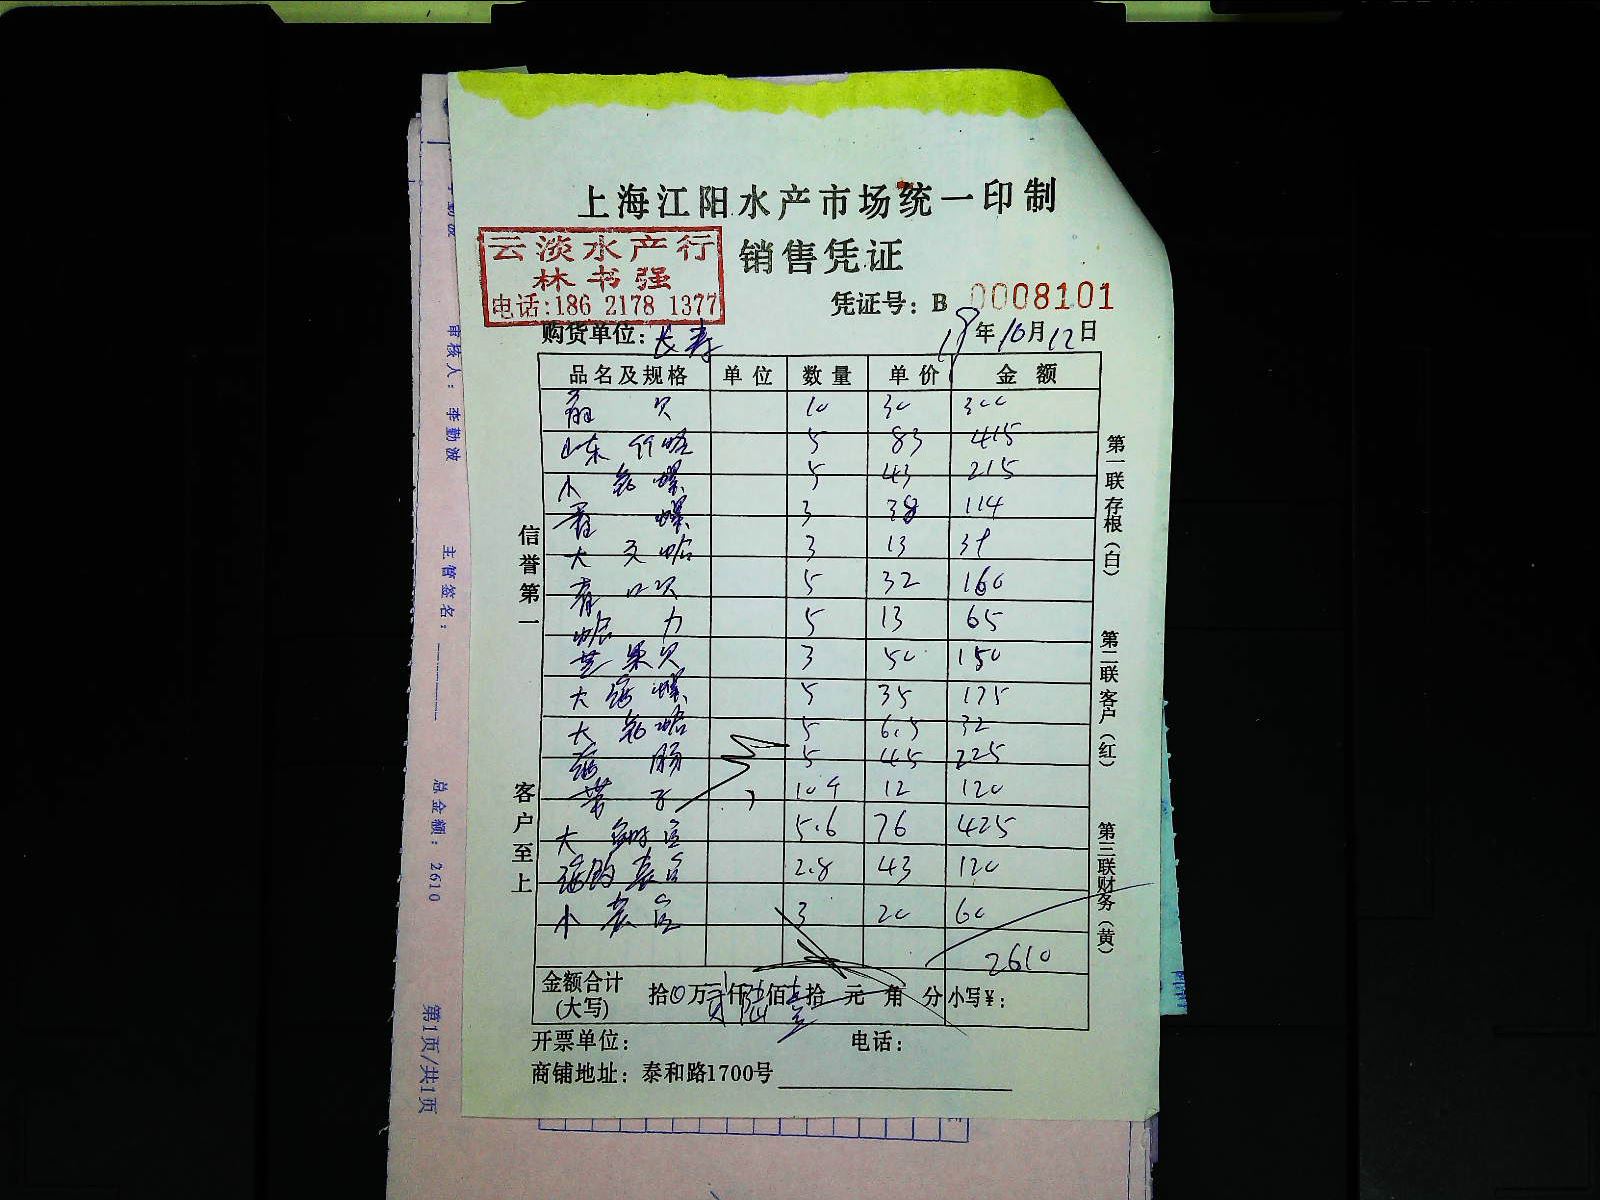 上海江阳水产市场统一印制
云淡水产行
林书强
电话:186 2178 1377
销售凭证
凭证号: B 0008101
购货单位: 长寿
18年10月12日
品名及规格 单位 数量 单价 金额
贝 10 30 300
山东 竹蛏 5 83 415
小 螺 5 43 215
螺 3 38 114
大 文蛤 3 13 39
青口贝 5 32 160
5 13 65
芒果贝 3 50 150
大海螺 5 35 175
大 蛤 5 6.5 32
海肠 5 45 225
带子 10个 12 120
大 5.6 76 425
2.8 43 120
小 3 20 60
2610
金额合计
(大写)
拾0万贰仟陆佰壹拾 元 角 分 小写¥:
开票单位: 电话:
商铺地址: 泰和路1700号
信誉第一
客户至上
第一联存根(白)
第二联客户(红)
第三联财务(黄)
审核人: 李勤波
主管签名:
总金额: 2610
第1页/共1页